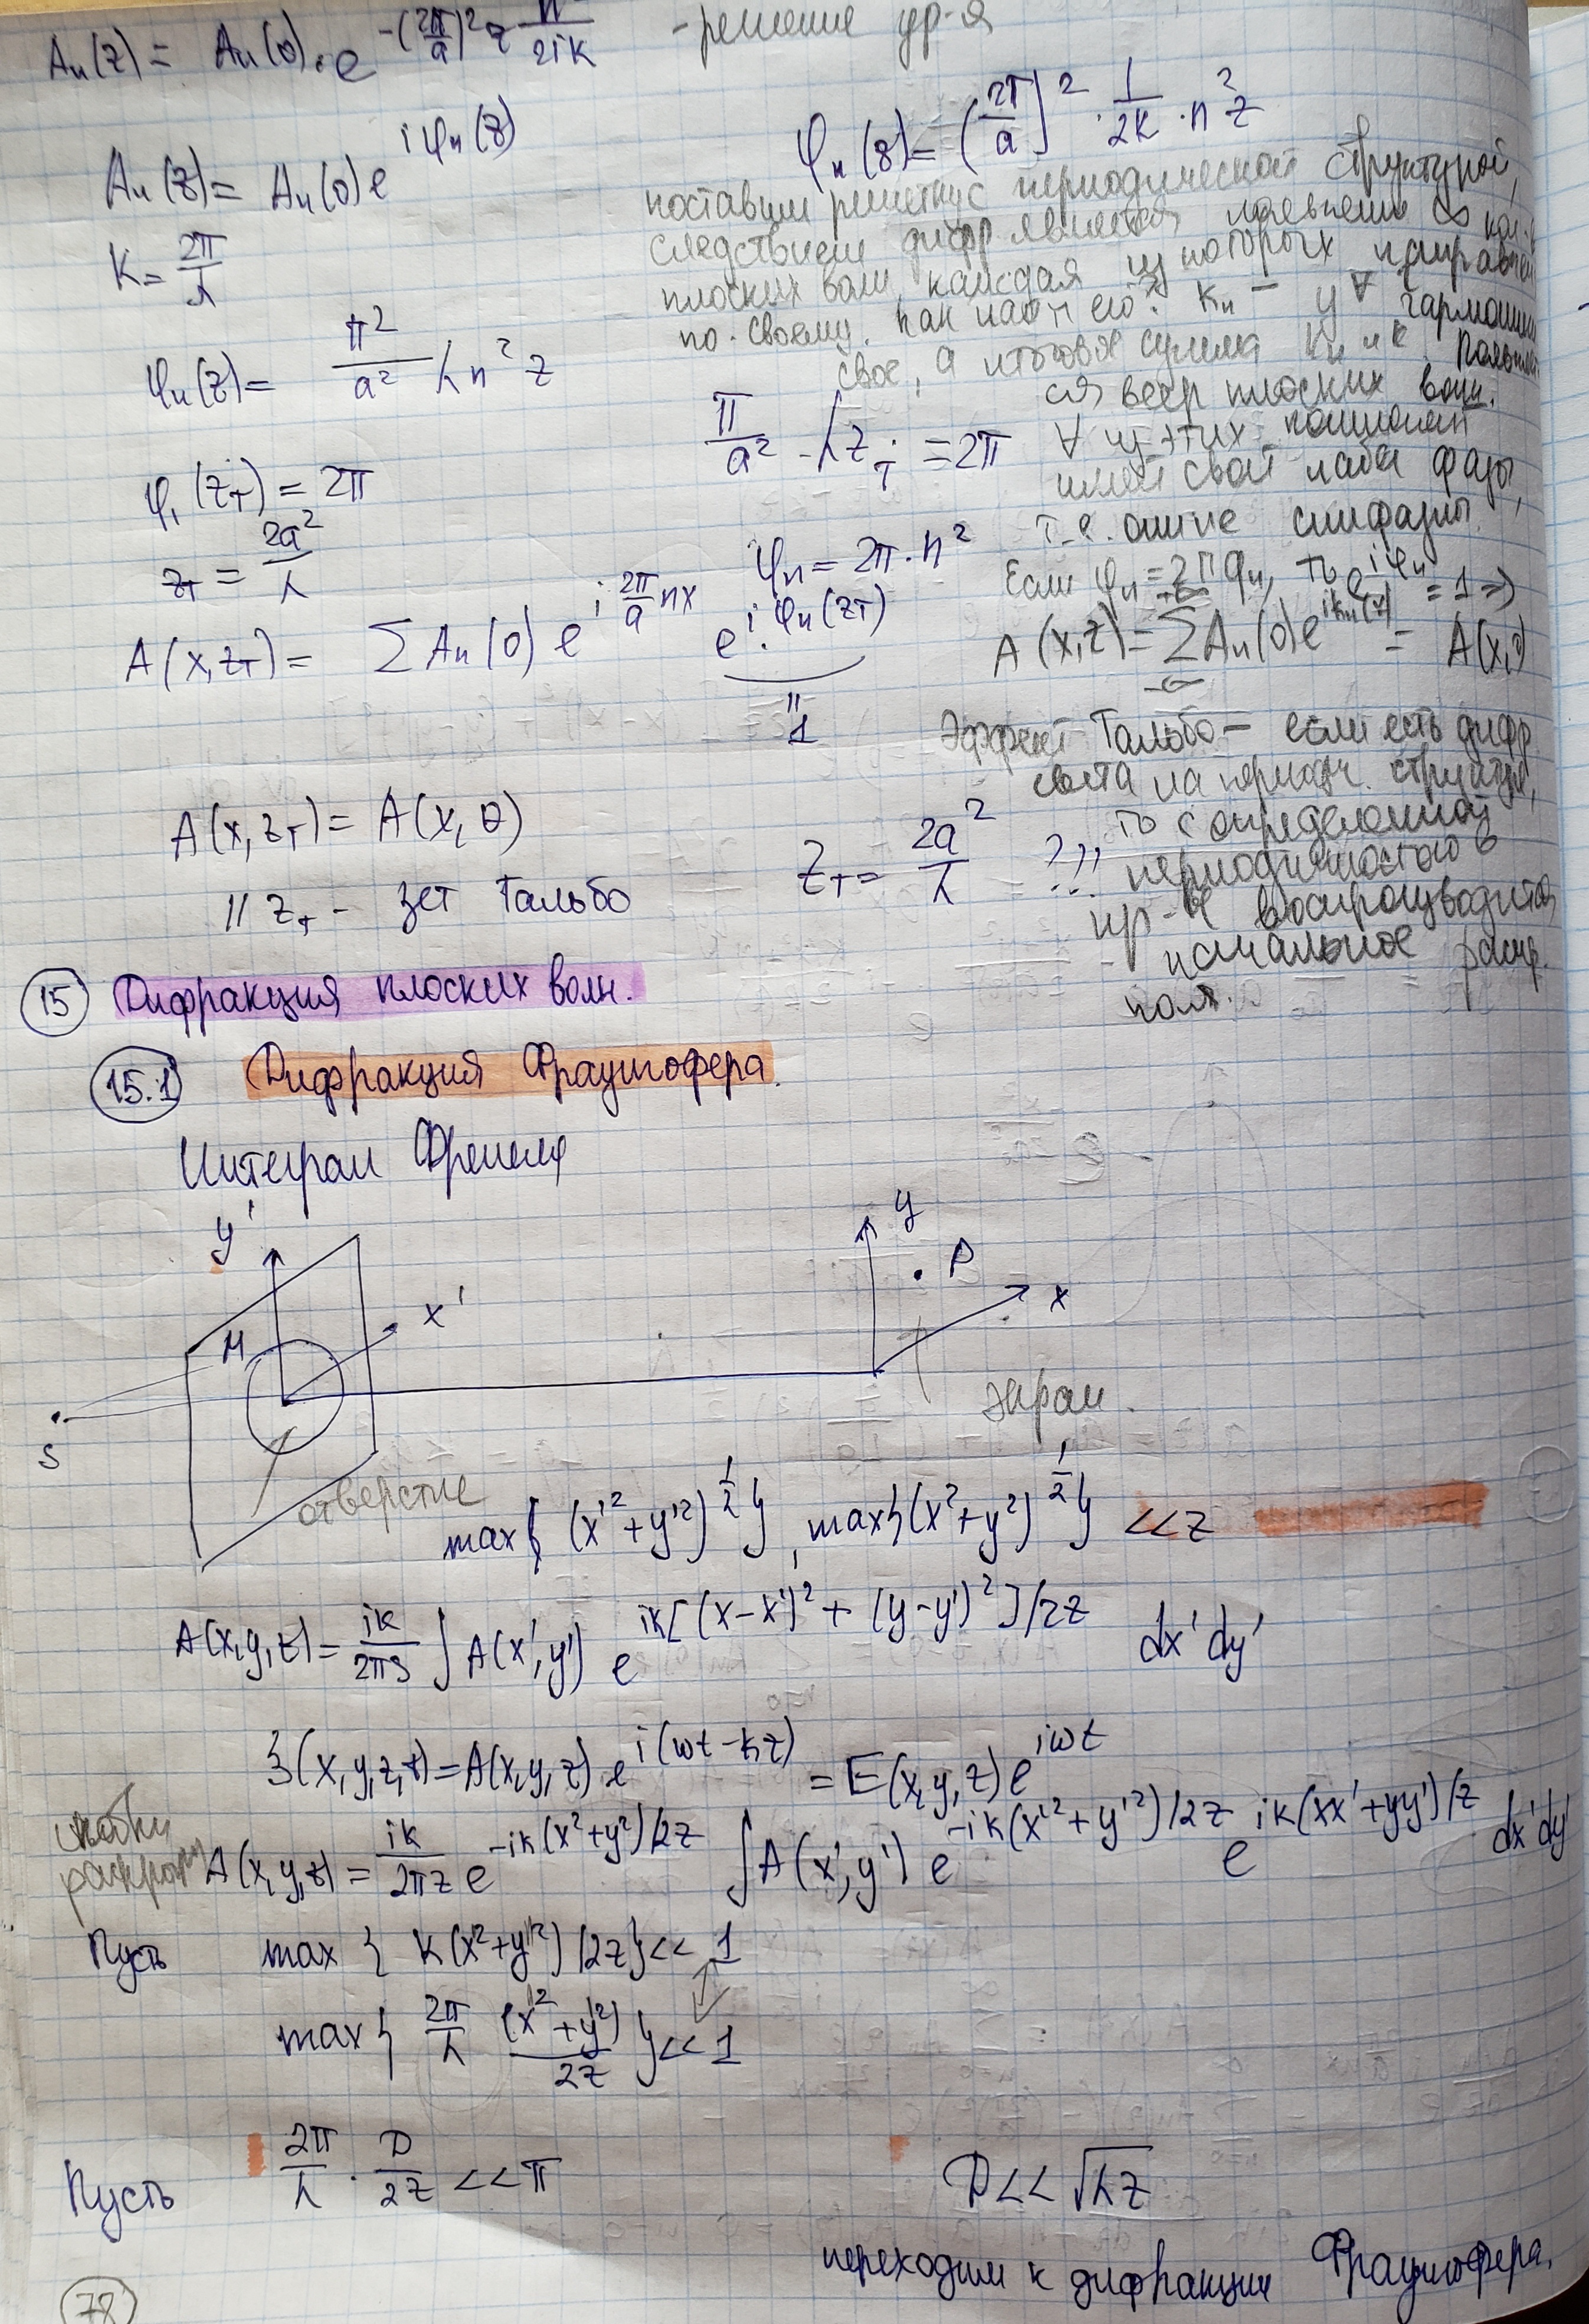 Aₙ(z) = Aₙ(0)·e^{-(2π/a)² z n²/2ik} - решение ур-я
Aₙ(z) = Aₙ(0)e^{iφₙ(z)}
φₙ(z) = (2π/a)² · 1/2k · n² z
k = 2π/λ
φₙ(z) = π²/a² λn² z
поставили решетку с периодической структурой,
следствием дифр является появление ∞ кол-
плоских волн, каждая из которых направлен
по-своему. как найти его? kₙ – у ∀ гармоники
свое, а итоговое сумма kₙ и k.
ся веер плоских волн.
∀ из этих компонент
имеет свой набег фазы,
т.е. они не синфазны.
π/a² · λz_T = 2π
φ₁(z_T) = 2π
z_T = 2a²/λ
φₙ = 2π·n²
Если φₙ = 2πqₙ, то e^{iφₙ} = 1 ⇒
A(x,z) = ΣAₙ(0)e^{ikₙ(x)} = A(x,0)
A(x,z_T) = ΣAₙ(0) e^{i 2π/a nx} e^{i·φₙ(z_T)}
= 1
Эффект Тальбо – если есть дифр
света на периодич. структуре,
то с определенной
периодичностью в
пр-ве воспроизводится
начальное распр.
поля.
A(x,z_T) = A(x,0)
z_T = 2a²/λ ?!!
// z_T - зет Тальбо
15 Дифракция плоских волн.
15.1 Дифракция Фраунгофера.
Интеграл Френеля
y'
y
P
x
x'
M
S
экран.
отверстие
max{(x'²+y'²)^{1/2}}, max{(x²+y²)^{1/2}} << z
A(x,y,z) = ik/2πz ∫A(x',y') e^{ik[(x-x')²+(y-y')²]/2z} dx'dy'
ξ(x,y,z,t) = A(x,y,z) e^{i(ωt-kz)} = E(x,y,z)e^{iωt}
скобки
A(x,y,z) = ik/2πz e^{-ik(x²+y²)/2z} ∫A(x',y') e^{-ik(x'²+y'²)/2z} e^{ik(xx'+yy')/z} dx'dy'
Пусть max{k(x'²+y'²)/2z} << 1
max{2π/λ (x'²+y'²)/2z} << 1
Пусть 2π/λ · D/2z << π D << √λz
переходим к дифракции Фраунгофера.
78